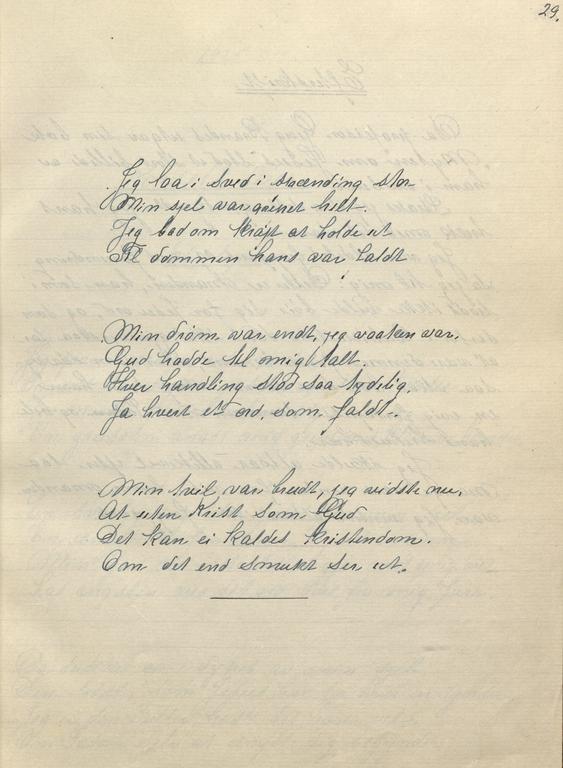 29.
Jeg laa i sved i spænding stor
Min sjel var grænet helt.
Jeg bad om kraft at holde ut
Til dommen hans var taldt
Min drøm var endt, jeg vaaken var.
Gud hadde til mig talt.
Hver handling stod saa tydelig.
Ja hvert et ord, som faldt.
Min tvil var brudt, jeg vidste nu.
At uten Krist som Gud
Det kan ei kaldes kristendom.
Om det end smukt ser ut.